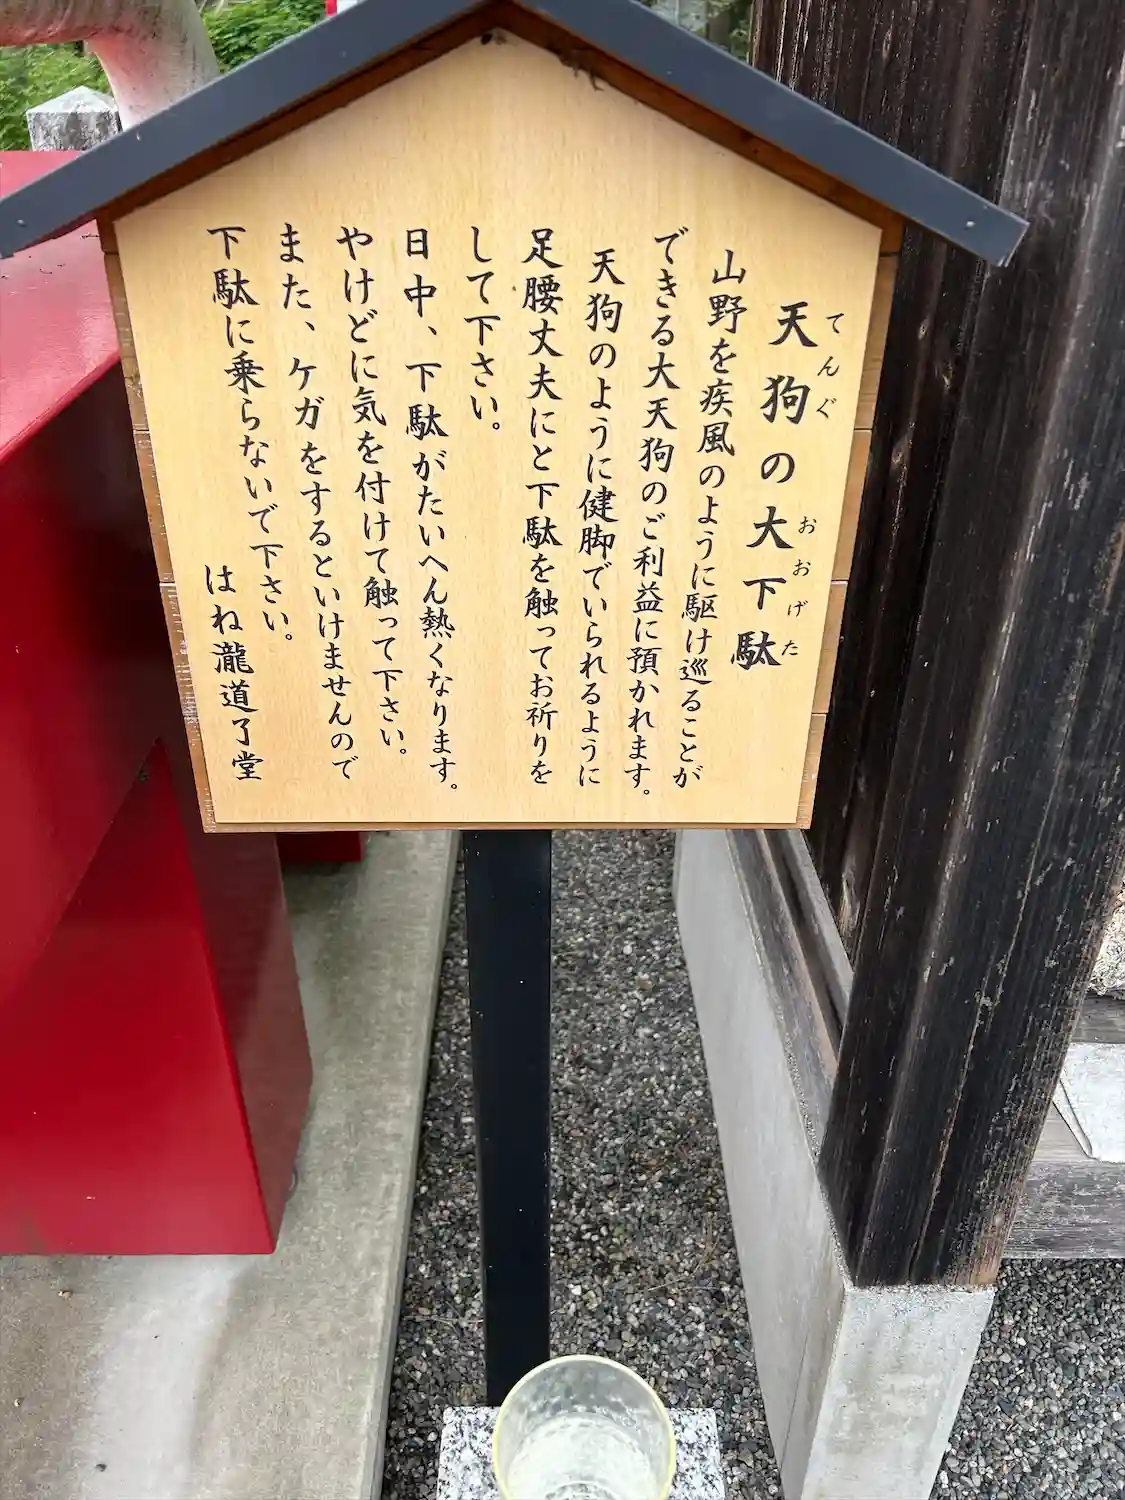 天狗の大下駄
てんぐ おおげた
山野を疾風のように駆け巡ることが
できる大天狗のご利益に預かれます。
天狗のように健脚でいられるように
足腰丈夫にと下駄を触ってお祈りを
して下さい。
日中、下駄がたいへん熱くなります。
やけどに気を付けて触って下さい。
また、ケガをするといけませんので
下駄に乗らないで下さい。
はね瀧道了堂